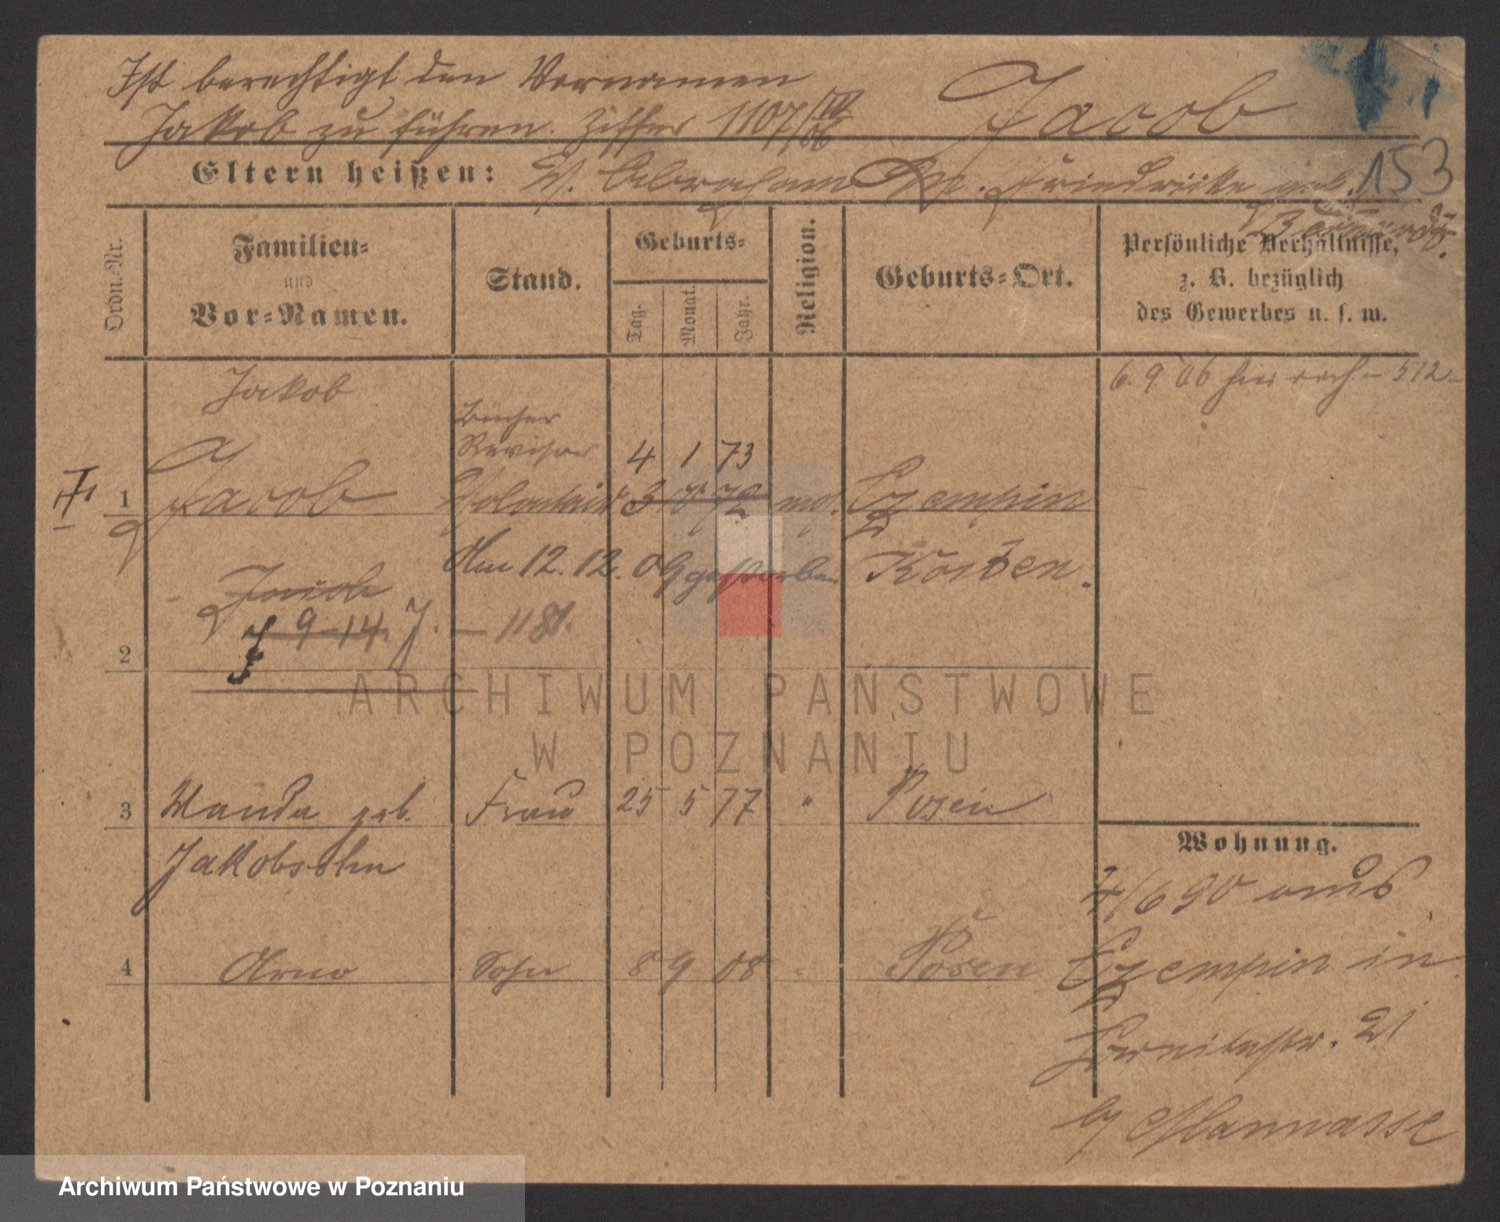 Ist berechtigt den Vornamen
Jakob zu führen. Ziffer 1107/IV 06
Jacob
153
Eltern heißen: V. Abraham M. Friedricke geb.
Ordn.-Nr.
Familien-
und
Vor-Namen.
Stand.
Geburts-
Tag.
Monat.
Jahr.
Religion.
Geburts-Ort.
Persönliche Verhältnisse,
z. B. bezüglich
des Gewerbes u. s. w.
6. 9. 06 512
Jakob
Bücher
Revisor 4 1 73
1 Jacob 3 8 72 mos. Czempin
Am 12. 12. 09 gestorben Kosten.
Jacob
9-14. J. - 1181.
2
3 Wanda geb. Frau 25 5 77 " Posen
Jakobsohn
4 Arno Sohn 8 9 08 Posen
Wohnung.
4/6 90 aus
Czempin in
Breitestr. 21
b/ Mannasse
ARCHIWUM PAŃSTWOWE
W POZNANIU
Archiwum Państwowe w Poznaniu